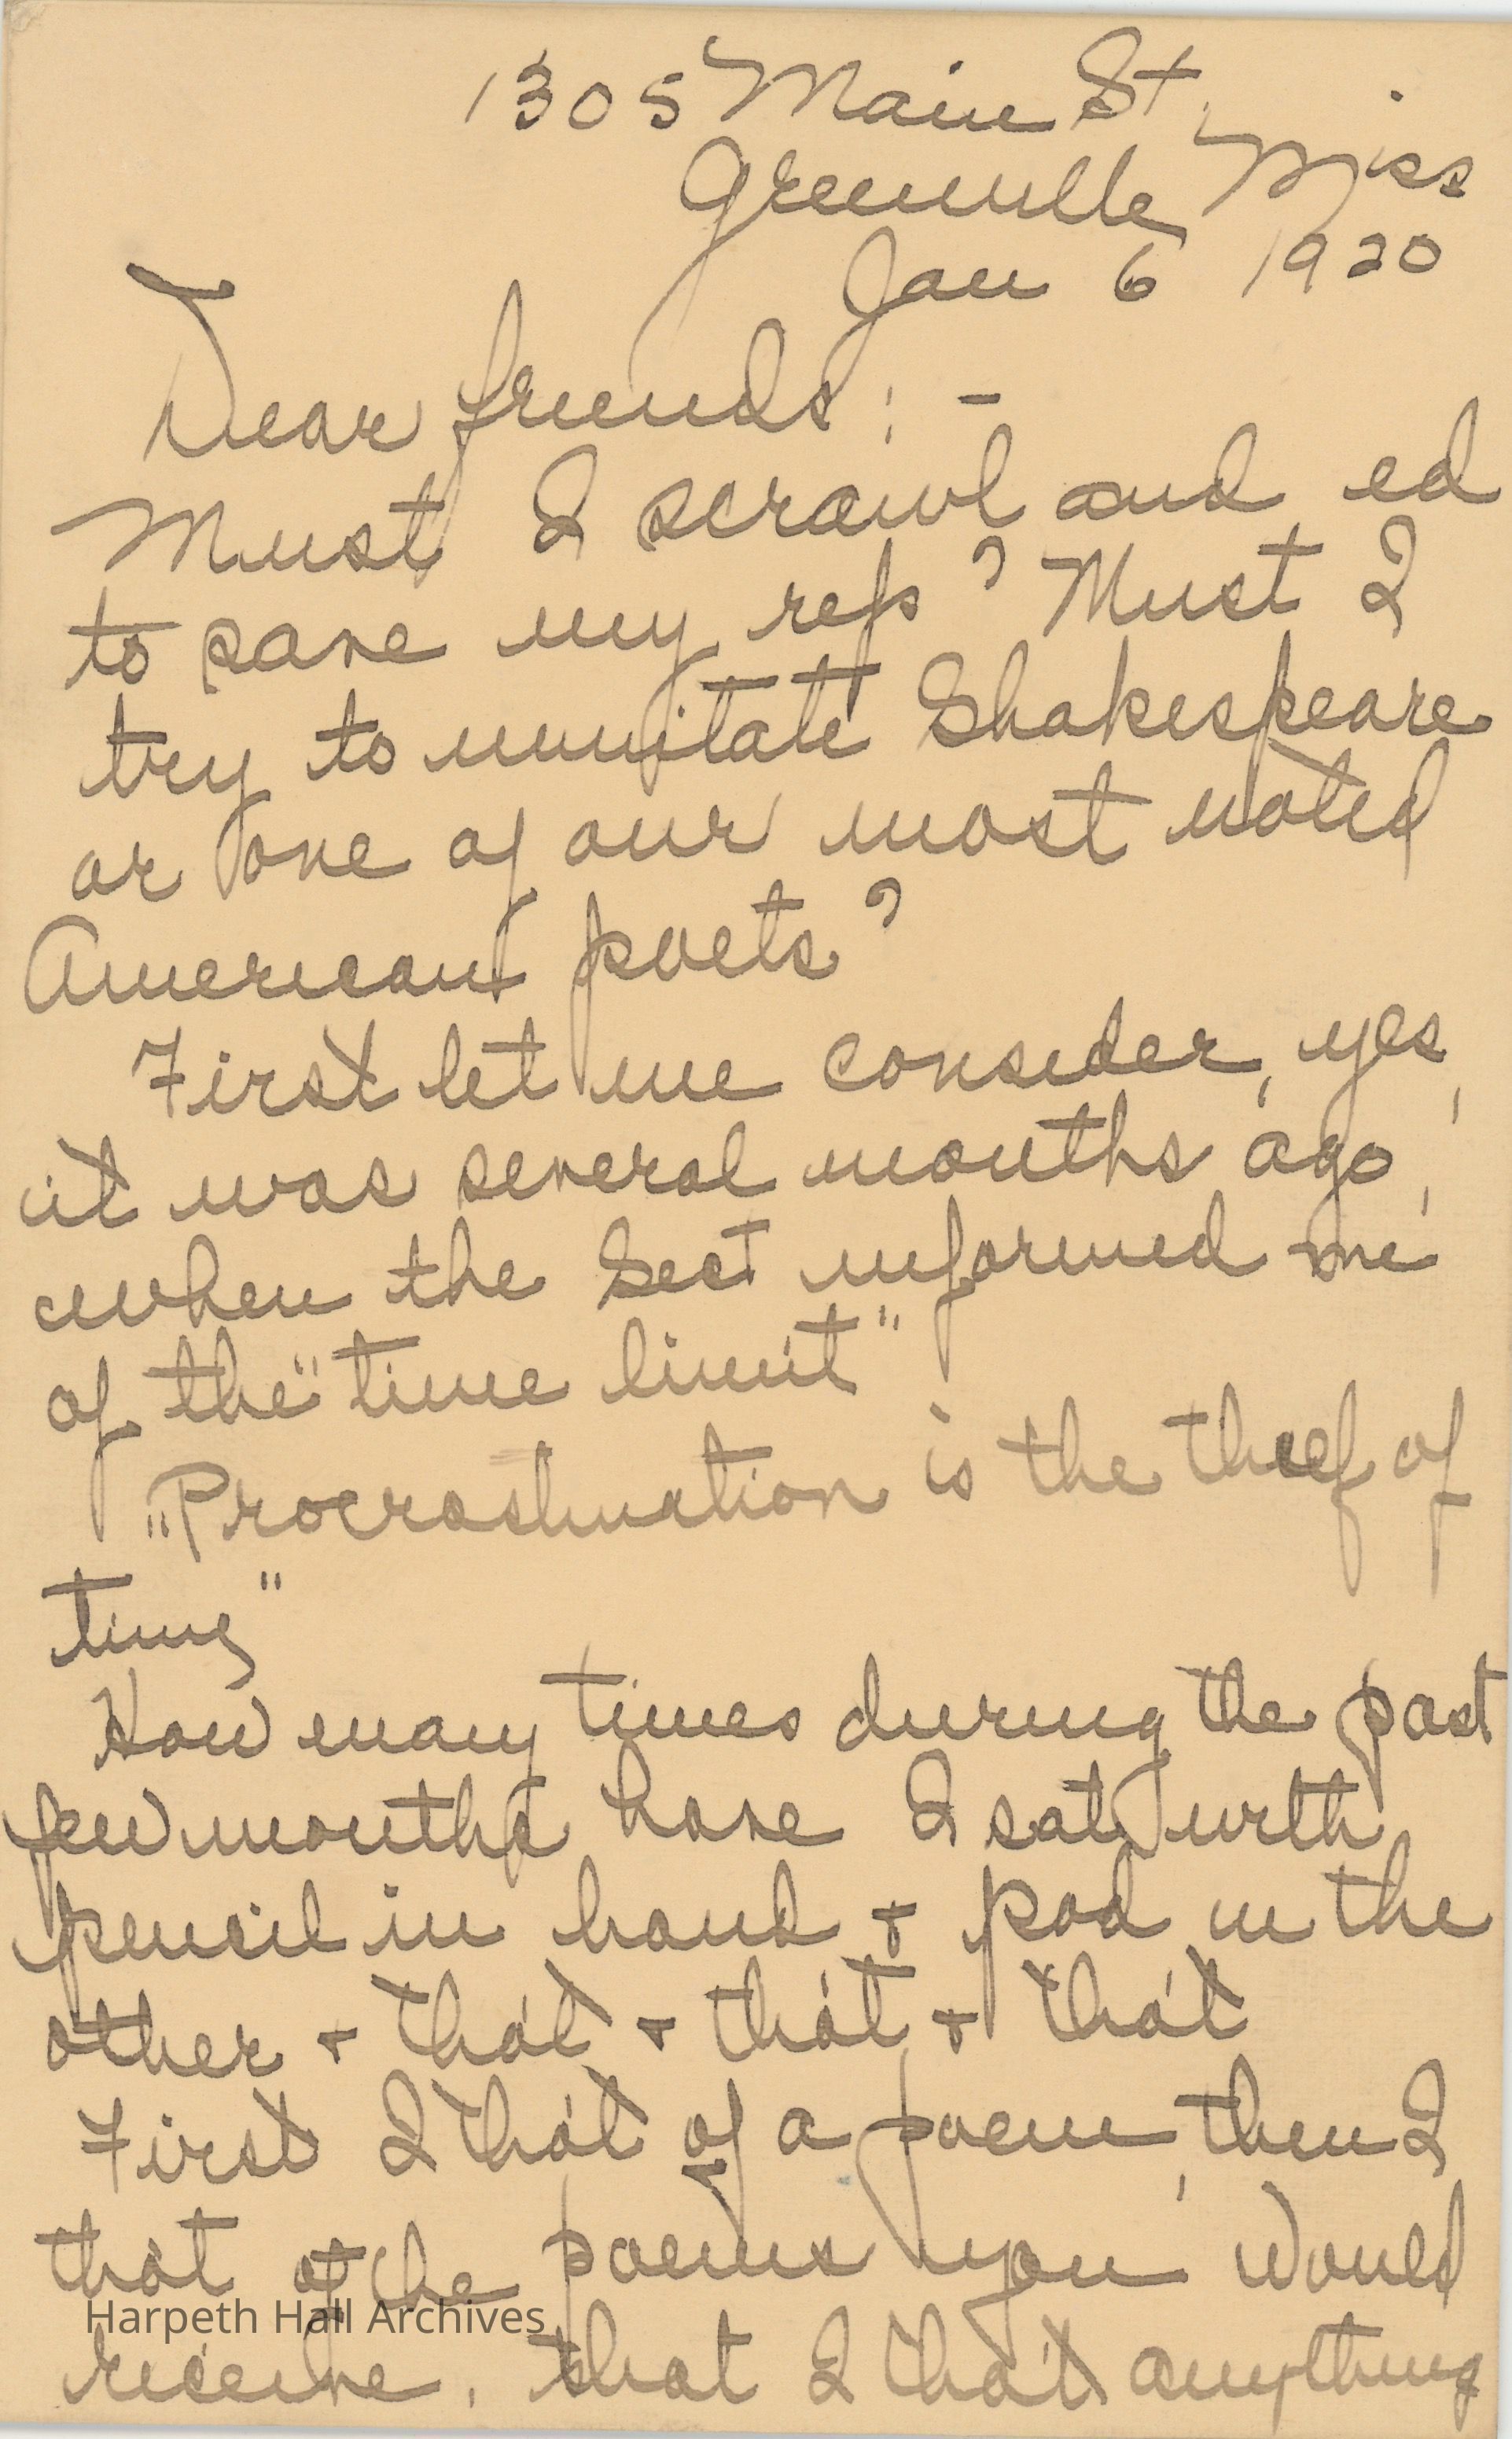 1305 Main St.
Greenville Miss
Jan 6 1920
Dear friends: -
Must I scrawl and ed
to save my rep? Must I
try to immitate Shakespeare
or one of our most noted
American poets?
First let me consider, yes,
it was several months ago,
when the Sect informed me
of the "time limit"
"Procrastination is the thief of
time"
How many times during the past
few months have I sat with
pencil in hand + pad in the
other + that + that + that
First I that of a poem, then I
that of the poems you would
receive. that I that anything
Harpeth Hall Archives